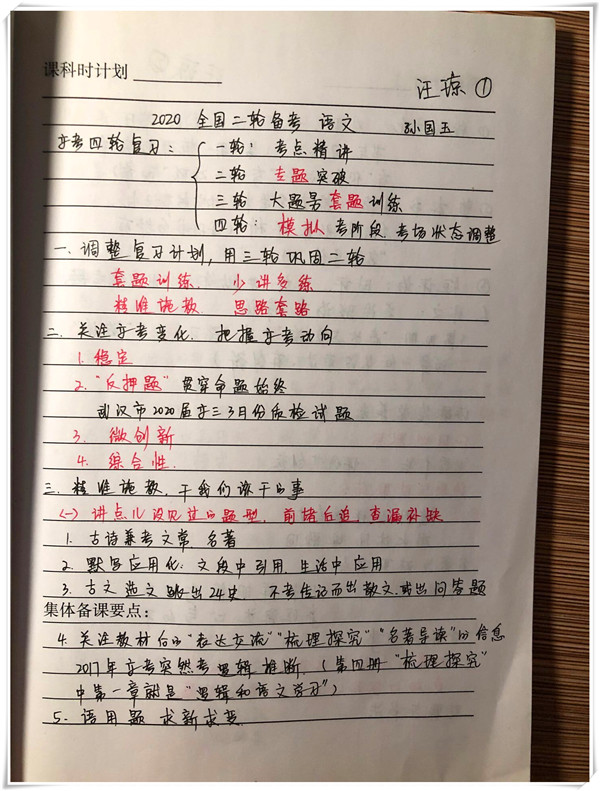 课科时计划
汪琼 ①
2020 全国二轮备考 语文 孙国玉
高考四轮复习： 一轮： 考点精讲
二轮 专题突破
三轮 大题号套题训练
四轮： 模拟考阶段、考场状态调整
一、调整复习计划，用三轮巩固二轮
套题训练、 少讲多练
精准施教、 思路套路
二、关注高考变化、 把握高考动向
1. 稳定
2. "反押题" 贯穿命题始终
武汉市2020届高三3月份质检试题
3. 微创新
4. 综合性.
三、精准施教、干我们该干的事
(一) 讲点儿没见过的题型, 前堵后追、查漏补缺
1. 古诗兼考文常 名著
2. 默写应用化：文段中引用、生活中应用
3. 古文选文跳出24史 不考传记而出散文.或出问答题
集体备课要点：
4. 关注教材后的"表达交流""梳理探究""名著导读"的信息
2017年高考突然考逻辑推断.（第四册"梳理探究"
中第一章就是"逻辑和语文学习"）
5. 语用题 求新求变